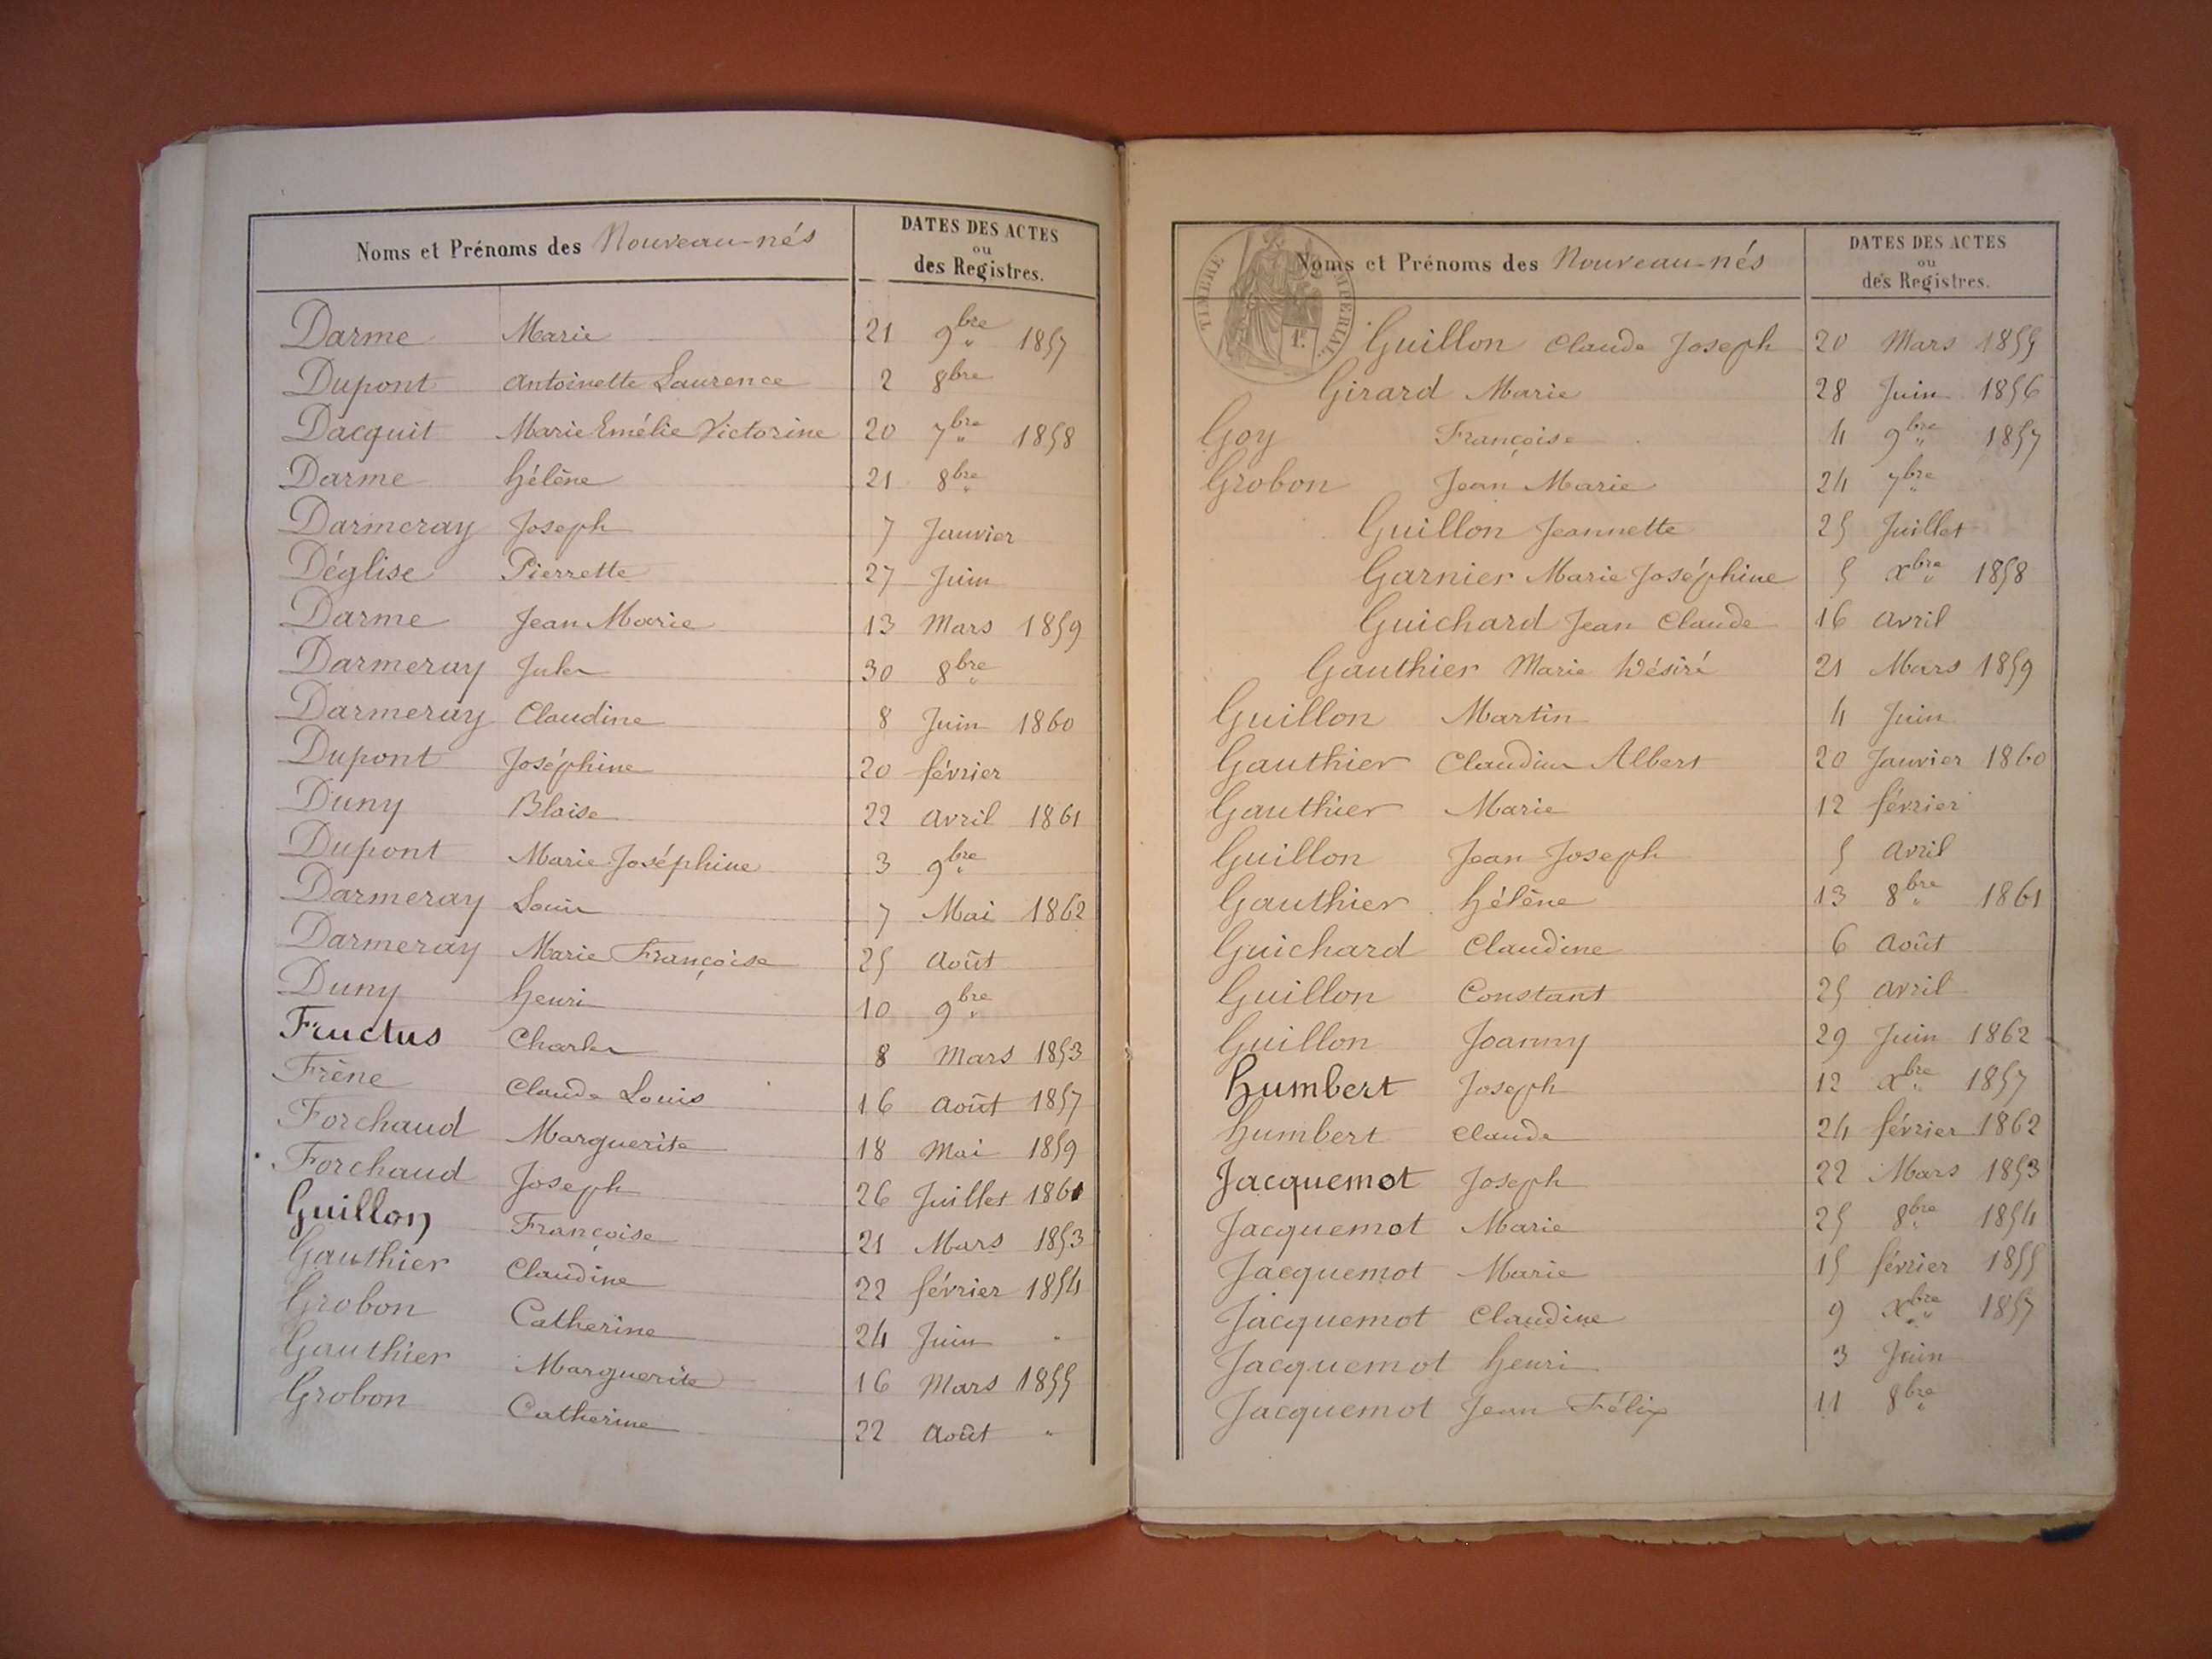 Noms et Prénoms des Nouveau-nés
DATES DES ACTES
ou
des Registres.
Darme Marie 21 9bre 1857
Dupont Antoinette Laurence 2 8bre
Dacquit Marie Emélie Victorine 20 7bre 1858
Darme hélène 21 8bre
Darmeray Joseph 7 Janvier
Déglise Pierrette 27 Juin
Darme Jean Marie 13 Mars 1859
Darmeray Jules 30 8bre
Darmeray Claudine 8 Juin 1860
Dupont Joséphine 20 février
Duny Blaise 22 avril 1861
Dupont Marie Joséphine 3 9bre
Darmeray Louis 7 Mai 1862
Darmeray Marie Françoise 25 Août
Duny henri 10 9bre
Fructus Charles 8 Mars 1853
Frène Claude Louis 16 Août 1857
Forchaud Marguerite 18 Mai 1859
Forchaud Joseph 26 Juillet 1861
Guillon Françoise 21 Mars 1853
Gauthier Claudine 22 février 1854
Grobon Catherine 24 Juin "
Gauthier Marguerite 16 Mars 1855
Grobon Catherine 22 Août "
TIMBRE IMPERIAL
1F.
Noms et Prénoms des Nouveau-nés
DATES DES ACTES
ou
des Registres.
Guillon Claude Joseph 20 Mars 1855
Girard Marie 28 Juin 1856
Goy Françoise 4 9bre 1857
Grobon Jean Marie 24 7bre
Guillon Jeannette 25 Juillet
Garnier Marie Joséphine 5 Xbre 1858
Guichard Jean Claude 16 avril
Gauthier Marie Désiré 21 Mars 1859
Guillon Martin 4 Juin
Gauthier Claudius Albert 20 Janvier 1860
Gauthier Marie 12 février
Guillon Jean Joseph 5 avril
Gauthier hélène 13 8bre 1861
Guichard Claudine 6 Août
Guillon Constant 25 avril
Guillon Joanny 29 Juin 1862
humbert Joseph 12 Xbre 1857
humbert Claude 24 février 1862
Jacquemot Joseph 22 Mars 1853
Jacquemot Marie 25 8bre 1854
Jacquemot Marie 15 février 1855
Jacquemot Claudine 9 Xbre 1857
Jacquemot henri 3 Juin
Jacquemot Jean Félix 11 8bre